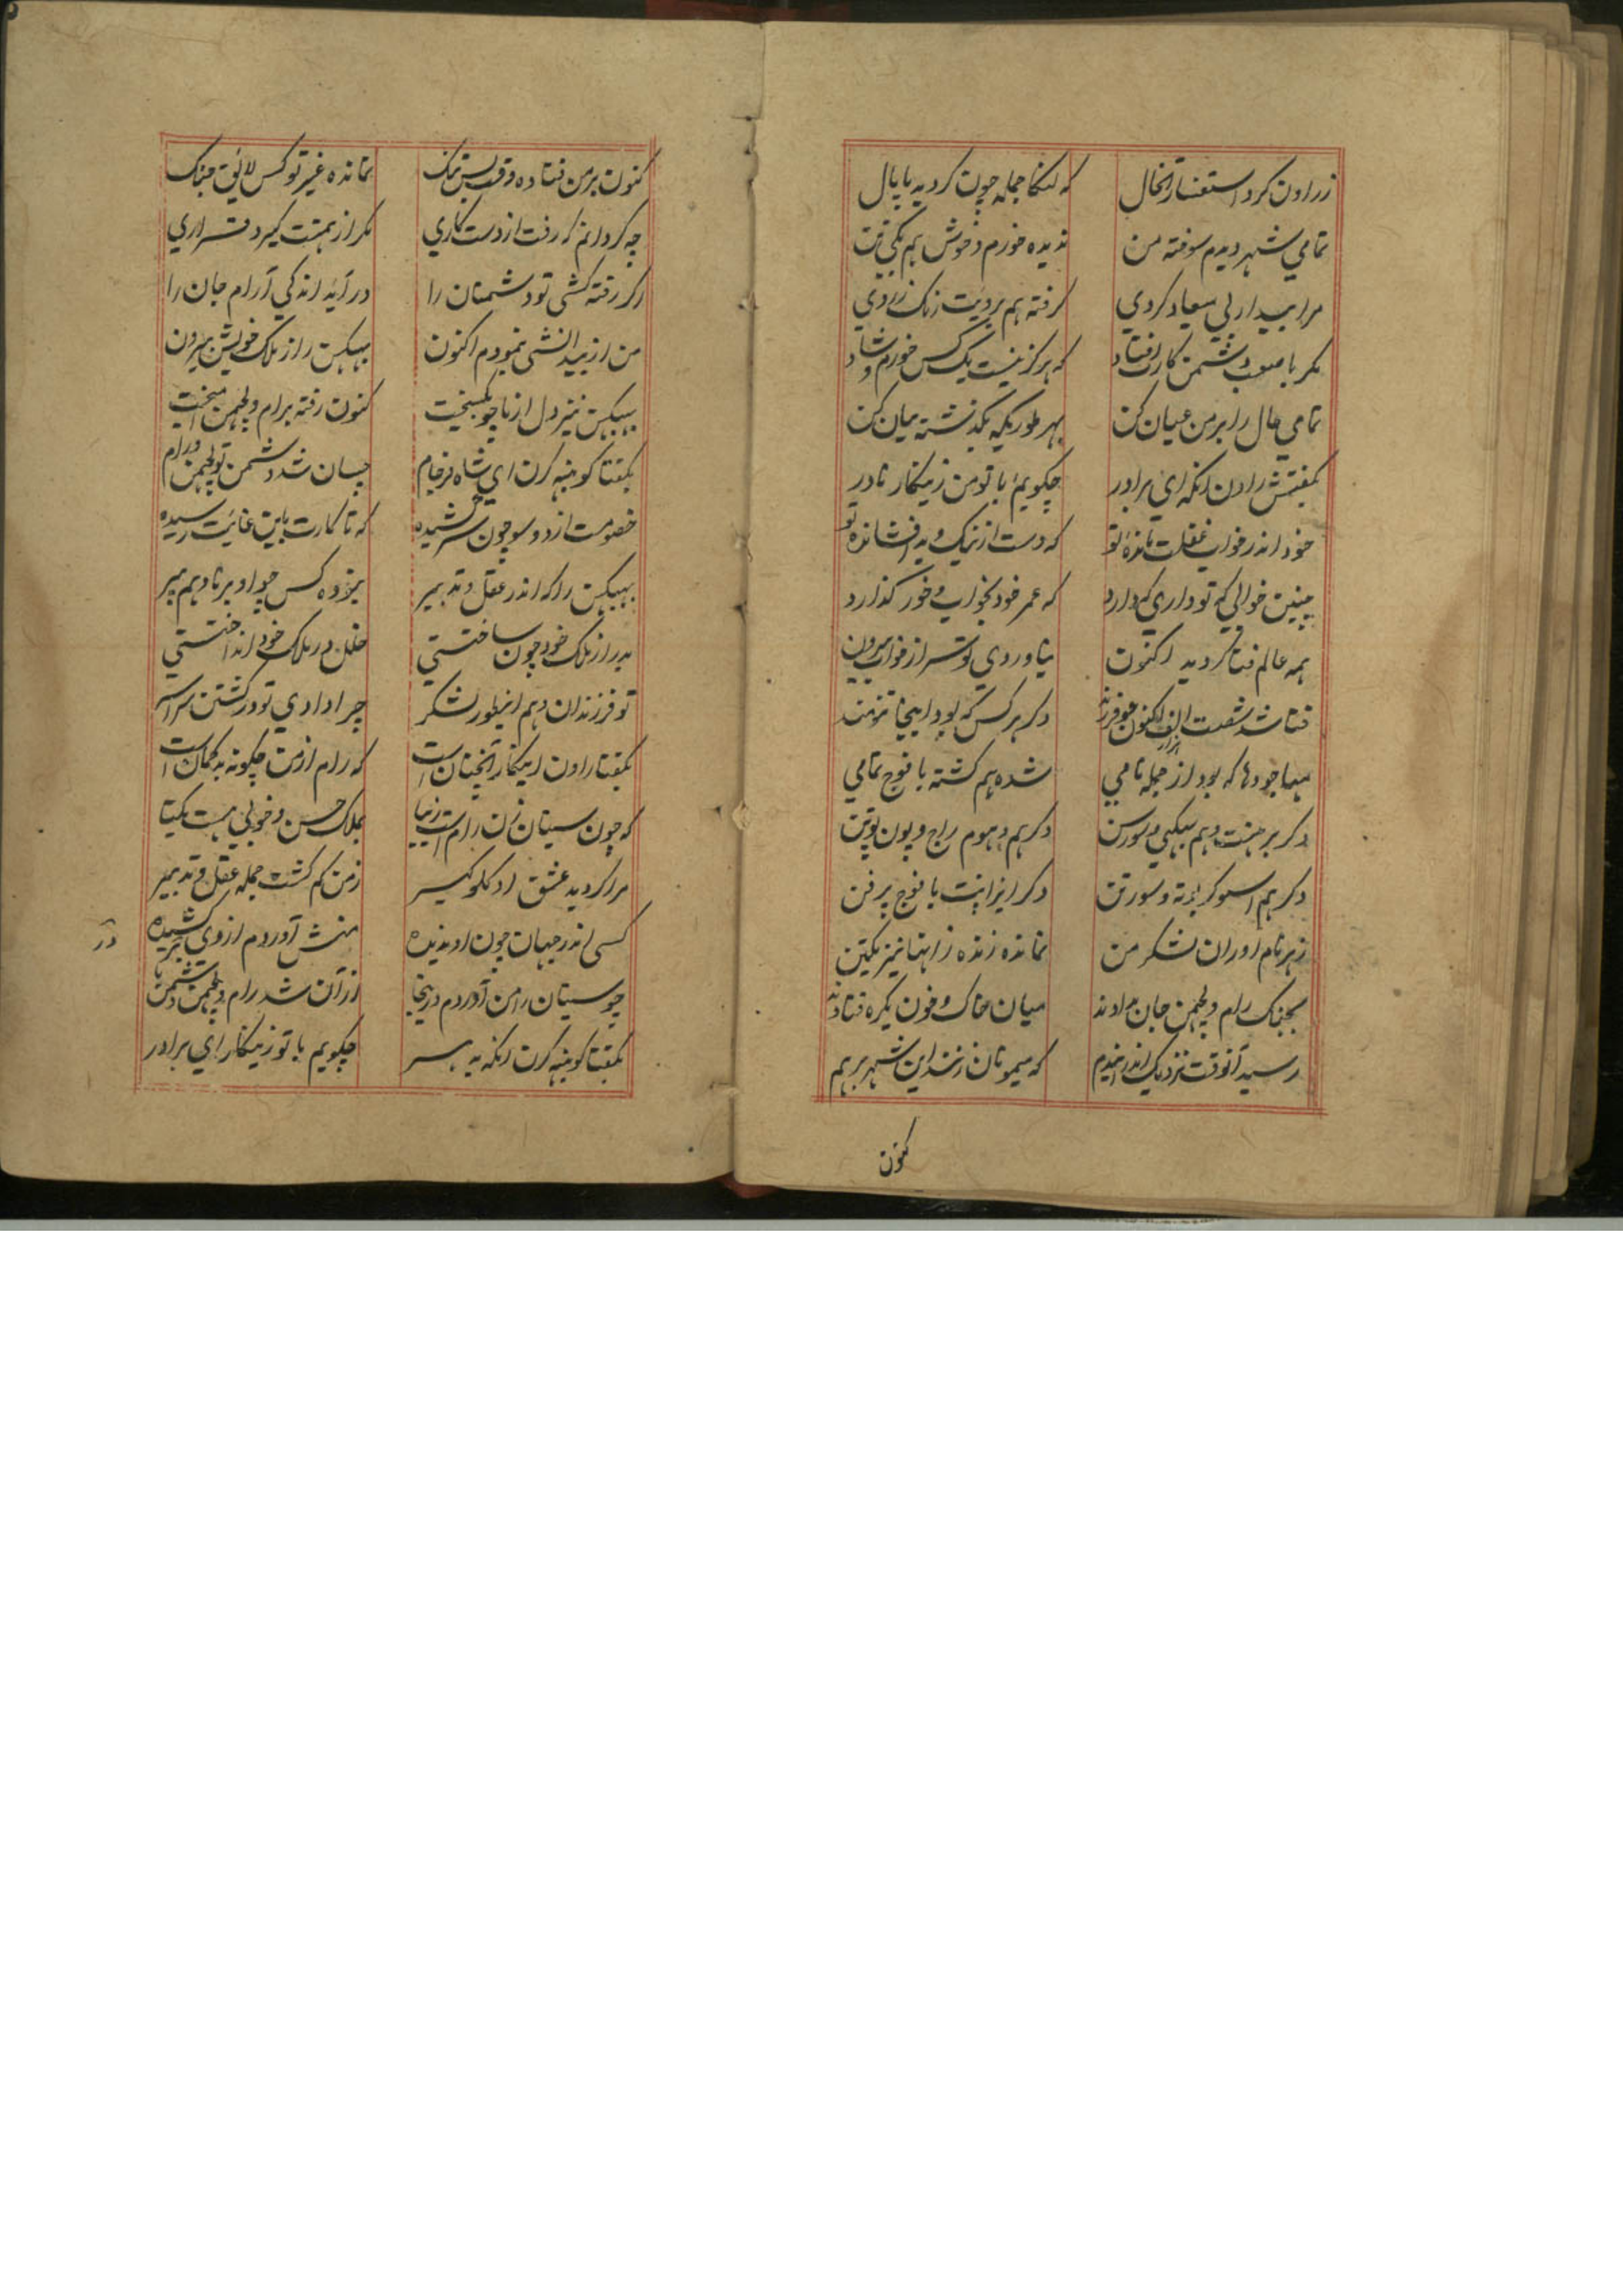 ز راون کرد استفسار آنحال که لنکا جمله چون کردید پایال
تمامی شهر دیدم سوخته من ندیده خورم و خوش هم یکی تن
مرا بیدار بی میعاد کردی گرفته هم برویت رنک زردی
مکر با صعب دشمن کارت افتاد که هرکز نیست یک کس خورم و شاد
تمامی حال را بر من عیان کن بهر طوریکه بکذشته بیان کن
بکفتش راون انکه ای برادر چکویم با تو من زینکار نادر
خود اندر خواب غفلت مانده تو که دست از نیک و بد افشانده تو
چنین خوابی که تو داری که دارد که عمر خود بخواب و خور کذارد
همه عالم فنا کردید اکنون نیاوردی تو سر از خواب بیرون
فنا شد شصت الف اکنون چو فرزند دکر هر کس که بود اینجا تنومند
مها جودها که بود از جمله نامی شده هم کشته با فوج تمامی
دکر بر هنت و هم سکهی و سورسن دکر هم دهوم راج و پون پوتن
دکر هم اسوکر ندنه و سورتن دکر ایراپت با فوج پر فن
ز هر نام اوران لشکر من نمانده زنده زاینها نیز یکتن
بجنک رام و لچهمن جان بدادند میان خاک و خون یکره فتادند
رسید آنوقت نزدیک اندرایندم که میمونان زنند این شهر برهم
کنون
کنون بر من فتاده وقت بس تنک نمانده غیر تو کس لائق جنک
چه کردانم که رفت از دست کاری مکر از همتت کیرد قراری
اکر رفته کشی تو دشمنان را در آید اندکی آرام جان را
من از بیدانشی نمودم اکنون بهبیکهن را ز ملک خویش بیرون
بهبیکهن نیز دل از ما چو بکسیخت کنون رفته برام و لچهمن آمیخت
بکفتا کونبهه کرن ای شاه فرجام چسان شد دشمن تو لچهمن و رام
خصومت از دو سو چون سر کشیده که تا کارت باین غائت رسیده
بهبیکهن را که اندر عقل و تدبیر نبوده کس چو او برنا و هم پیر
بدر از ملک خود چون ساختستی خلل در ملک خود انداختستی
تو فرزندان و هم اینطور لشکر چرا دادی تو در کشتن سراسر
بکفتا راون اینکار آنچنان است که رام از من چکونه بدکمان است
که چون سیتان زن رام است زیبا بملک حسن و خوبی هست یکتا
مرا کردید عشق او کلوکیر ز من کم کشت جمله عقل و تدبیر
کسی اندر جهان چون او ندیده منش آوردم از وی سر کشیده
چو سیتان را من آوردم درینجا از آن شد رام و لچهمن دشمن ما
بکفتا کونبهه کرن انکه به سر چکویم با تو زینکار ای برادر
در